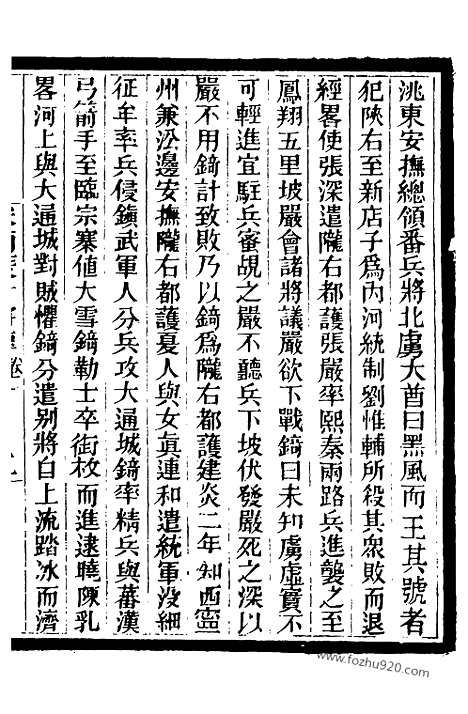 洮東安撫總領番兵將北虜大酋曰黑風而王其號者
犯陝右至新店子爲內河統制劉惟輔所殺其衆敗而退
經畧使張深遣隴右都護張嚴率熙秦兩路兵進襲之至
鳳翔五里坡嚴會諸將議嚴欲下戰錡曰未知虜虛實不
可輕進宜駐兵蜜覘之嚴不聽兵下坡伏發嚴死之深以
嚴不用錡計致敗乃以錡爲隴右都護建炎二年知西寧
州兼沿邊安撫隴右都護夏人與女眞連和遣統軍没細
征年率兵侵鎭武軍人分兵攻大通城錡率精兵與蕃漢
弓箭手至臨宗寨値大雪錡勒士卒銜枚而進逮曉陳乳
畧河上與大通城對賊懼錡分遣別將自上流踏冰而濟
www.fozhu920.com